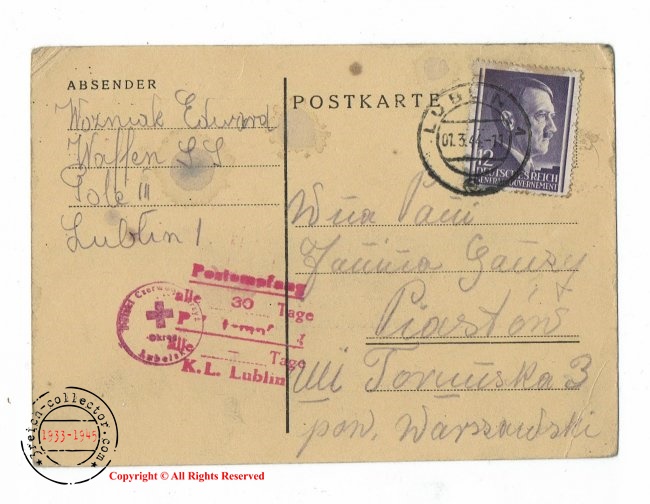 ABSENDER
Woźniak Edward
Waffen SS
Pole III
Lublin 1
POSTKARTE
LUBLIN 1
01.3.44
12
DEUTSCHES REICH
GENERALGOUVERNEMENT
Wna Pani
Janina
Piastów
Ul Toruńska 3
pow. Warszawski
Postempfang
alle 30 Tage
alle Tage
K.L. Lublin
Polski Czerwony Krzyż
Okręg
reich-collector.com
1933-1945
Copyright © All Rights Reserved